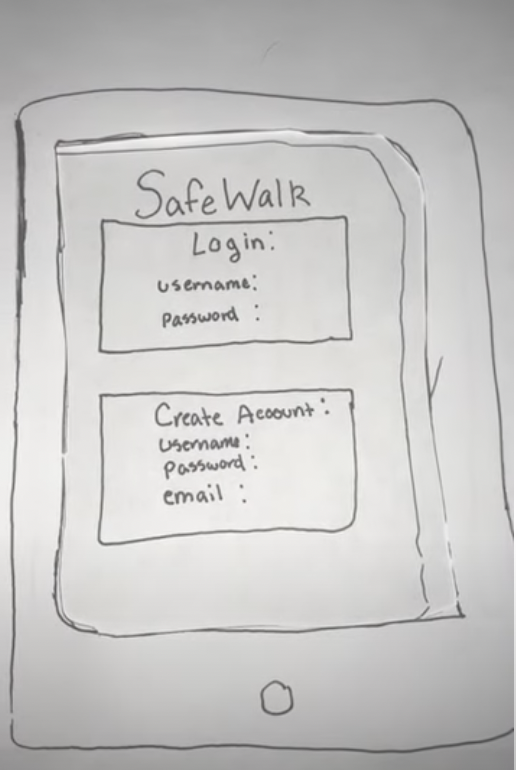 SafeWalk
Login:
username:
password :
Create Account:
username:
password:
email :